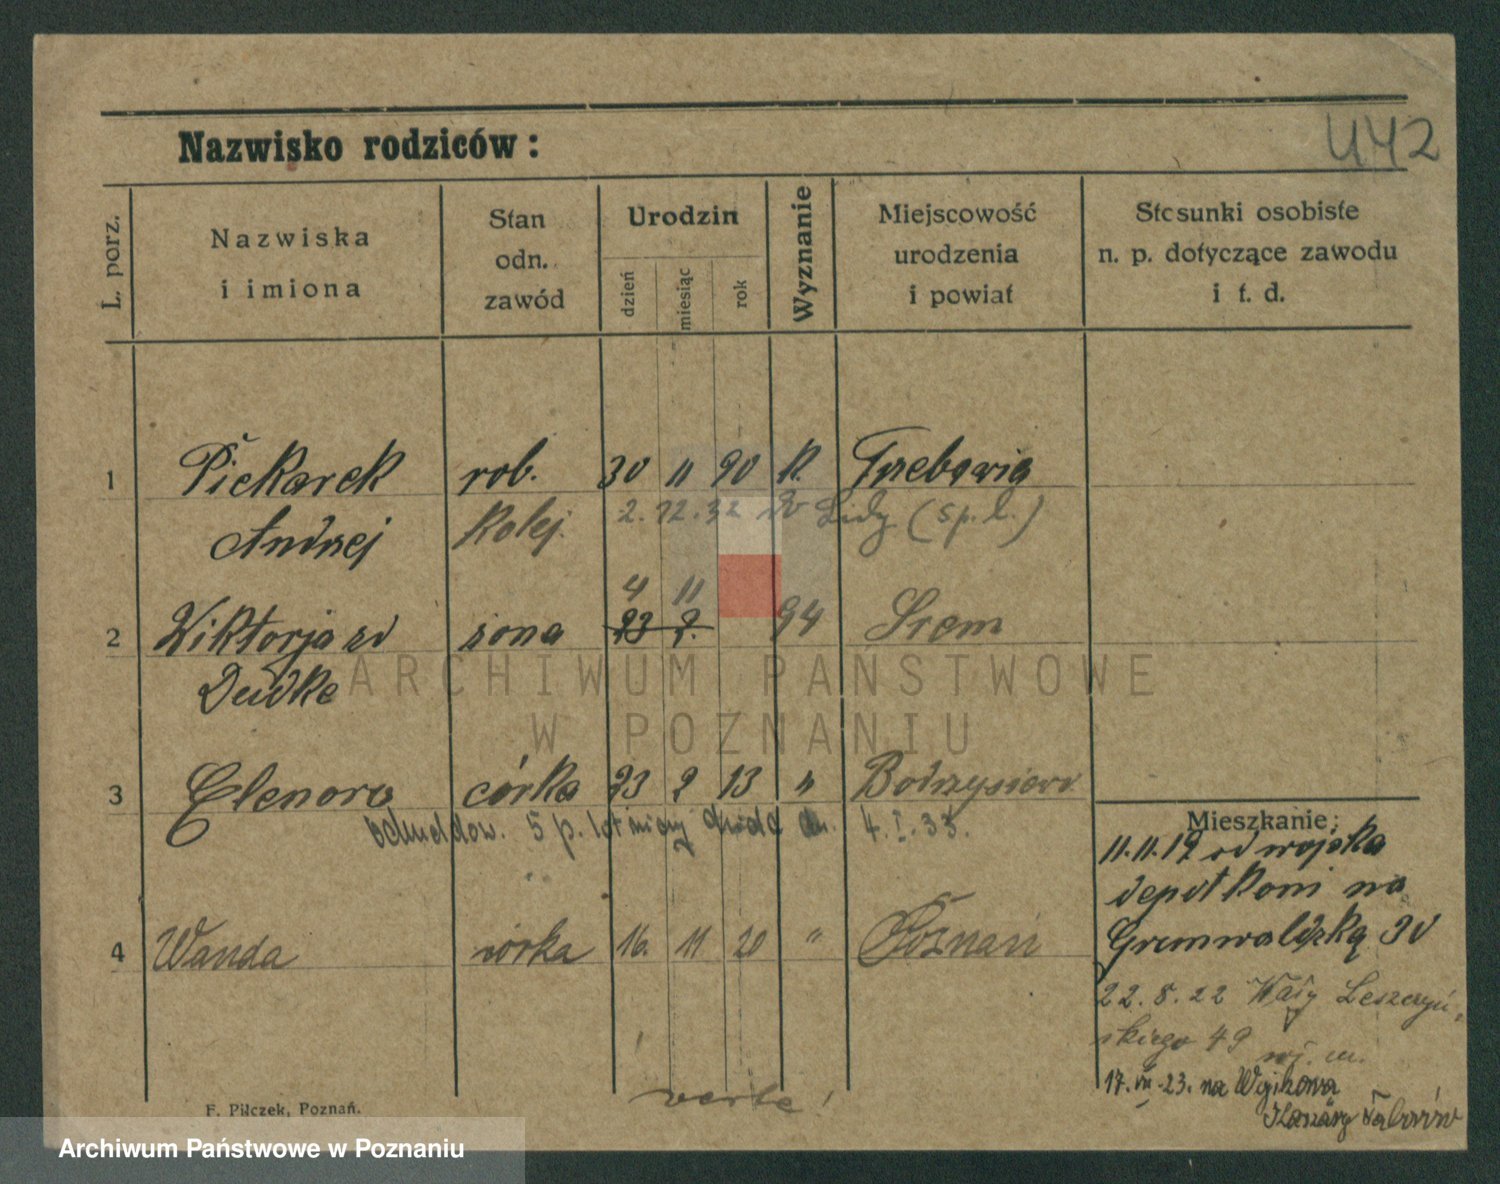 442
Nazwisko rodziców:
L. porz.
Nazwiska
i imiona
Stan
odn.
zawód
Urodzin
dzień
miesiąc
rok
Wyznanie
Miejscowość
urodzenia
i powiat
Stosunki osobiste
n. p. dotyczące zawodu
i t. d.
1 Piekarek rob. 30 11 90 K. Trzebawia
Andrzej Kolej. 2.12.32 do Lidy (sp. l.)
4 11
2 Wiktorja zd żona 23 2. 94 Śrem
Dudke
3 Elenora córka 23 2 13 "
5 p. lotniczy Lida dn. 4.I.33.
4 Wanda córka 16. 11 20 " Poznań
Mieszkanie:
11.11.19 od wojska
depot koni na
Grunwaldzką 30
22.8.22 Wały Leszczyń-
skiego 49
17. 23. na
verte!
F. Pilczek, Poznań.
ARCHIWUM PAŃSTWOWE
W POZNANIU
Archiwum Państwowe w Poznaniu